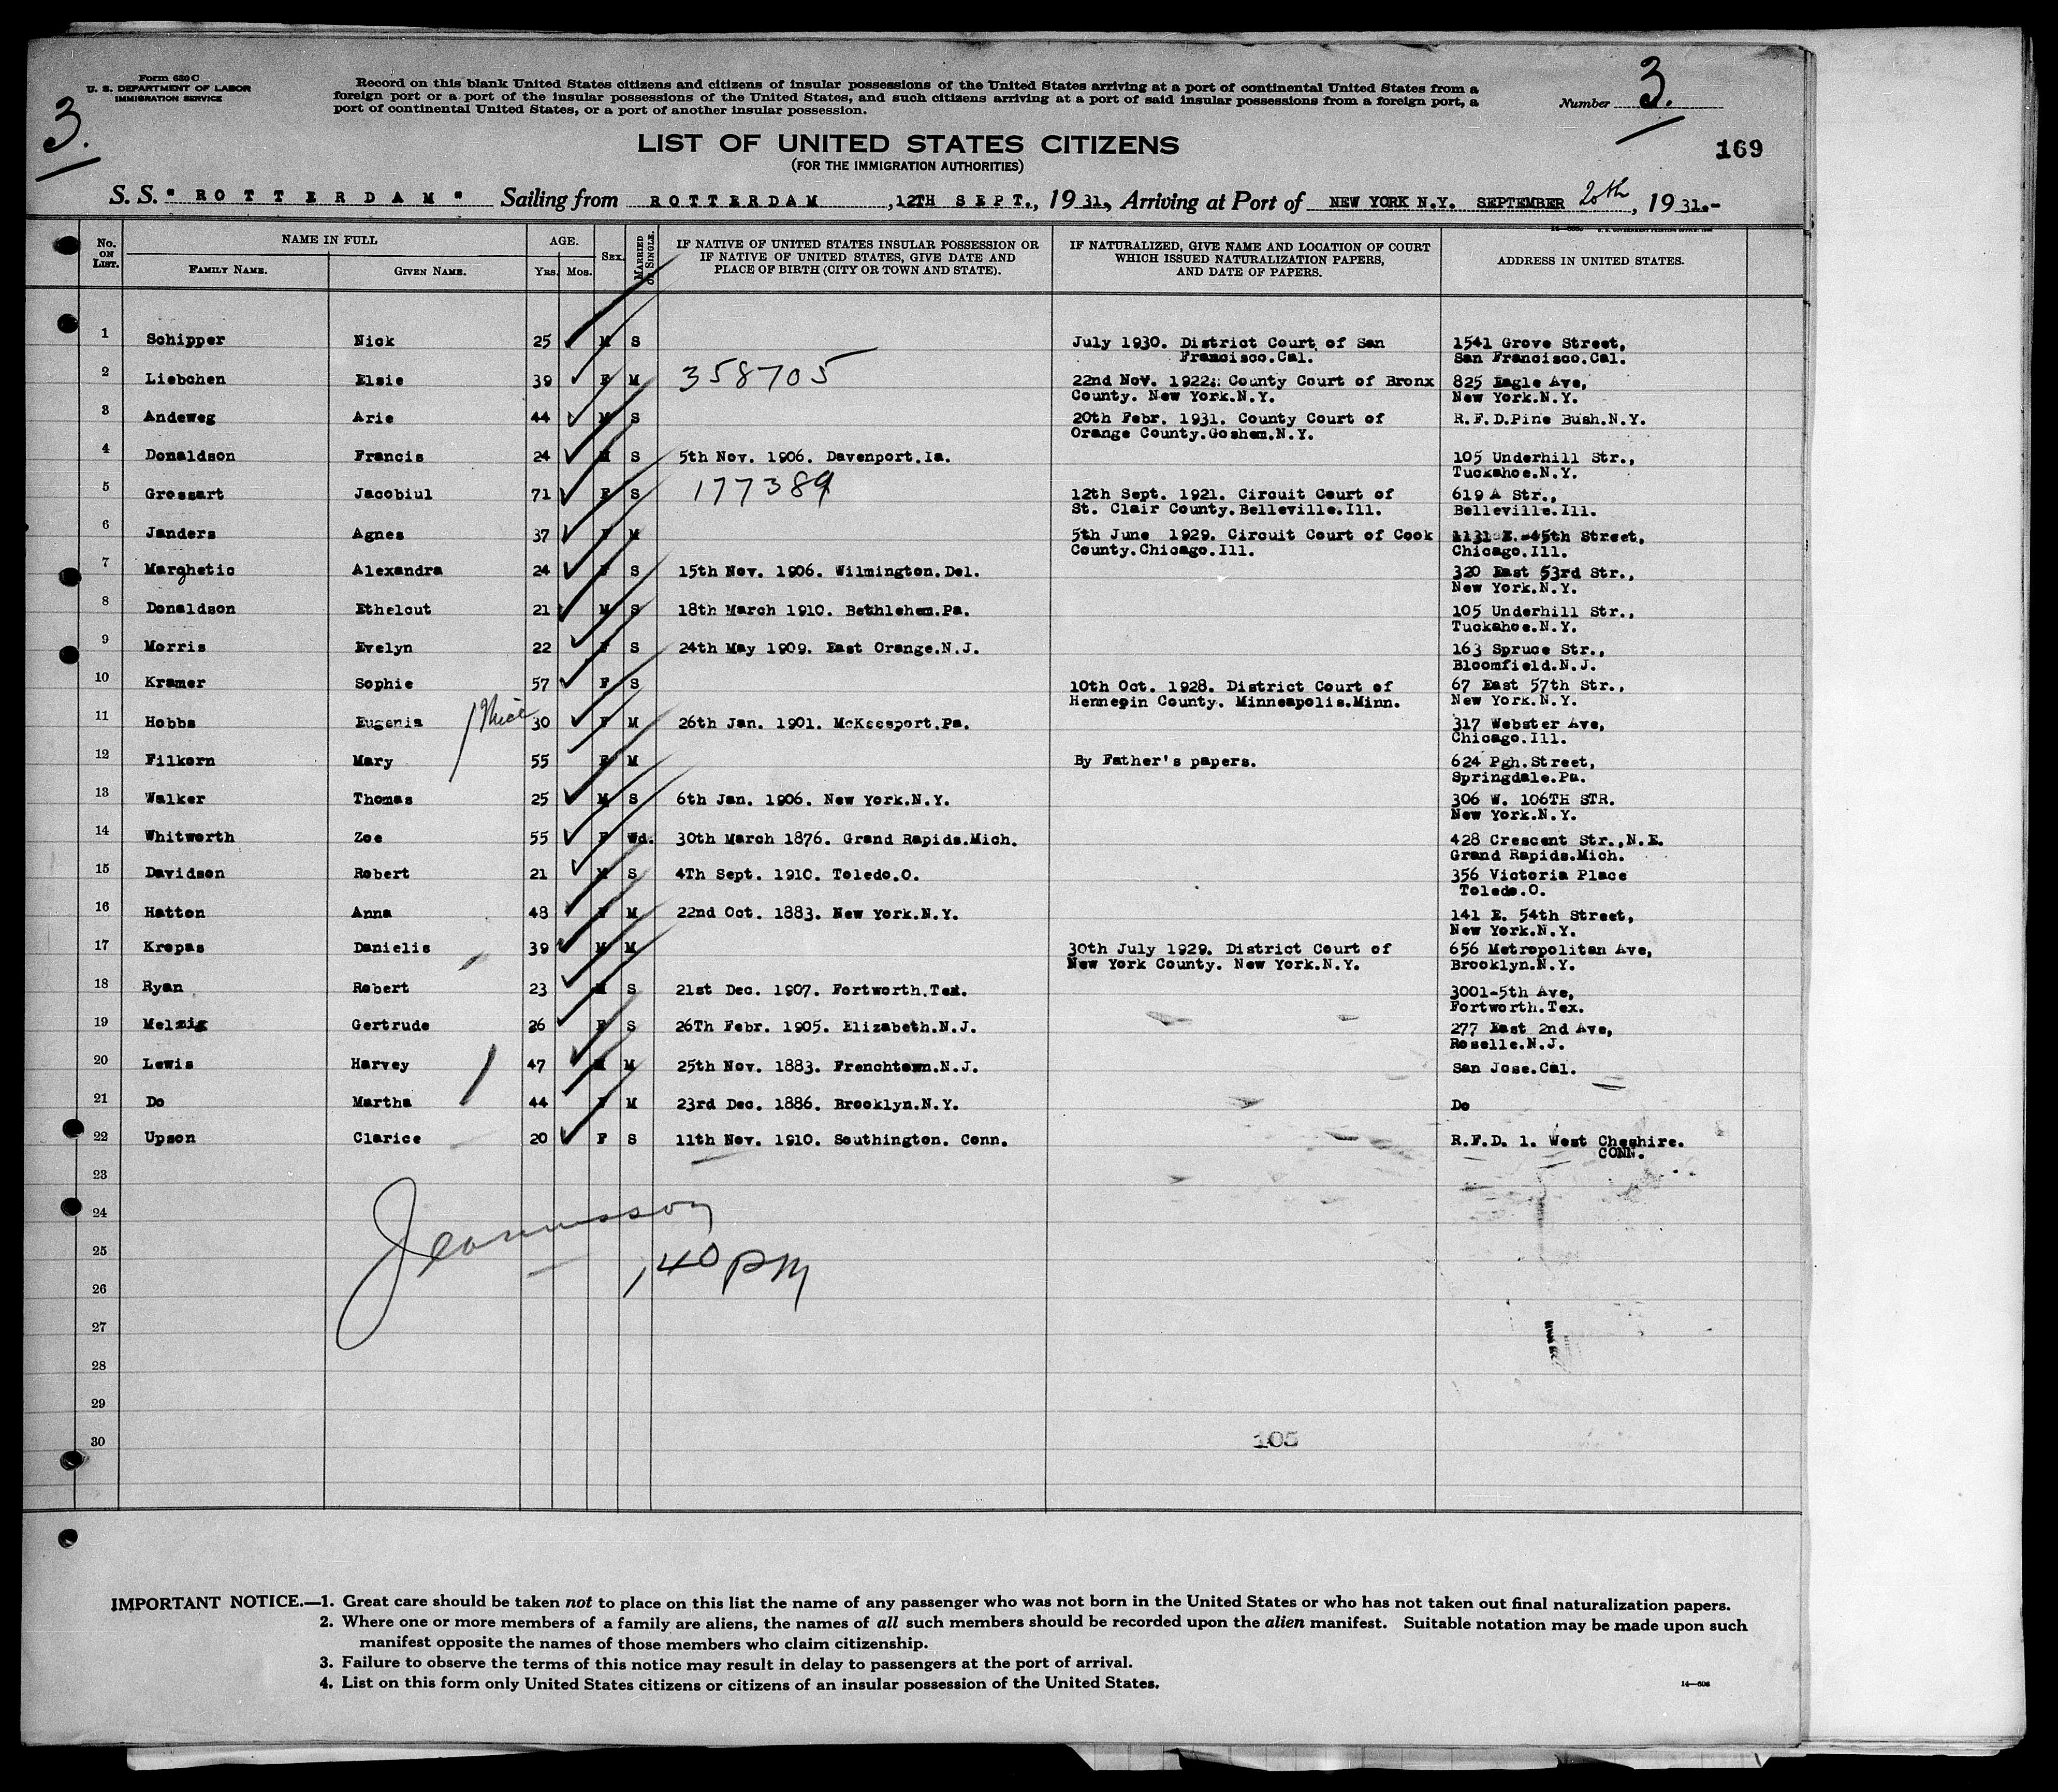 Form 630 C
U. S. DEPARTMENT OF LABOR
IMMIGRATION SERVICE
3.
Record on this blank United States citizens and citizens of insular possessions of the United States arriving at a port of continental United States from a
foreign port or a port of the insular possessions of the United States, and such citizens arriving at a port of said insular possessions from a foreign port, a
port of continental United States, or a port of another insular possession.
Number 3.
LIST OF UNITED STATES CITIZENS
(FOR THE IMMIGRATION AUTHORITIES)
169
S. S. "ROTTERDAM" Sailing from ROTTERDAM, 12TH SEPT., 1931, Arriving at Port of NEW YORK N.Y. SEPTEMBER 20th, 1931.-
No. ON LIST. NAME IN FULL FAMILY NAME. GIVEN NAME. AGE. Yrs. Mos. SEX. MARRIED OR SINGLE. IF NATIVE OF UNITED STATES INSULAR POSSESSION OR IF NATIVE OF UNITED STATES, GIVE DATE AND PLACE OF BIRTH (CITY OR TOWN AND STATE). IF NATURALIZED, GIVE NAME AND LOCATION OF COURT WHICH ISSUED NATURALIZATION PAPERS, AND DATE OF PAPERS. ADDRESS IN UNITED STATES.
1 Schipper Nick 25 M S July 1930. District Court of San 1541 Grove Street,
Francisco.Cal. San Francisco.Cal.
2 Liebchen Elsie 39 F M 358705 22nd Nov. 1922. County Court of Bronx 825 Eagle Ave,
County. New York.N.Y. New York.N.Y.
3 Andeweg Arie 44 M S 20th Febr. 1931. County Court of R.F.D.Pine Bush.N.Y.
Orange County.Goshen.N.Y.
4 Donaldson Francis 24 M S 5th Nov. 1906. Davenport.Ia. 105 Underhill Str.,
Tuckahoe.N.Y.
5 Grossart Jacobiul 71 F S 177389 12th Sept. 1921. Circuit Court of 619 A Str.,
St. Clair County.Belleville.Ill. Belleville.Ill.
6 Janders Agnes 37 F M 5th June 1929. Circuit Court of Cook 1131 E. 45th Street,
County.Chicago.Ill. Chicago.Ill.
7 Marghetic Alexandra 24 F S 15th Nov. 1906. Wilmington.Del. 320 East 53rd Str.,
New York.N.Y.
8 Donaldson Ethelcut 21 M S 18th March 1910. Bethlehem.Pa. 105 Underhill Str.,
Tuckahoe.N.Y.
9 Morris Evelyn 22 F S 24th May 1909. East Orange.N.J. 163 Spruce Str.,
Bloomfield.N.J.
10 Kramer Sophie 57 F S 10th Oct. 1928. District Court of 67 East 57th Str.,
Hennepin County. Minneapolis.Minn. New York.N.Y.
11 Hobbs Eugenia 30 F M 26th Jan. 1901. McKeesport.Pa. 317 Webster Ave,
Chicago.Ill.
12 Filkorn Mary 55 F M By Father's papers. 624 Pgh.Street,
Springdale.Pa.
13 Walker Thomas 25 M S 6th Jan. 1906. New York.N.Y. 306 W. 106TH STR.
New York.N.Y.
14 Whitworth Zoe 55 F Wd. 30th March 1876. Grand Rapids.Mich. 428 Crescent Str.,N.E.
Grand Rapids.Mich.
15 Davidson Robert 21 M S 4Th Sept. 1910. Toledo.O. 356 Victoria Place
Toledo.O.
16 Hatton Anna 48 F M 22nd Oct. 1883. New York.N.Y. 141 E. 54th Street,
New York.N.Y.
17 Krepas Danielis 39 M M 30th July 1929. District Court of 656 Metropolitan Ave,
New York County. New York.N.Y. Brooklyn.N.Y.
18 Ryan Robert 23 M S 21st Dec. 1907. Fortworth.Tex. 3001-5th Ave,
Fortworth.Tex.
19 Melzig Gertrude 26 F S 26Th Febr. 1905. Elizabeth.N.J. 277 East 2nd Ave,
Roselle.N.J.
20 Lewis Harvey 47 M M 25th Nov. 1883. Frenchtown.N.J. San Jose.Cal.
21 Do Martha 44 F M 23rd Dec. 1886. Brooklyn.N.Y. Do
22 Upson Clarice 20 F S 11th Nov. 1910. Southington. Conn. R.F.D. 1. West Cheshire.
CONN.
23
24
25
140 PM
26
27
28
29
30
105
IMPORTANT NOTICE.—1. Great care should be taken not to place on this list the name of any passenger who was not born in the United States or who has not taken out final naturalization papers.
2. Where one or more members of a family are aliens, the names of all such members should be recorded upon the alien manifest. Suitable notation may be made upon such
manifest opposite the names of those members who claim citizenship.
3. Failure to observe the terms of this notice may result in delay to passengers at the port of arrival.
4. List on this form only United States citizens or citizens of an insular possession of the United States.
14—608